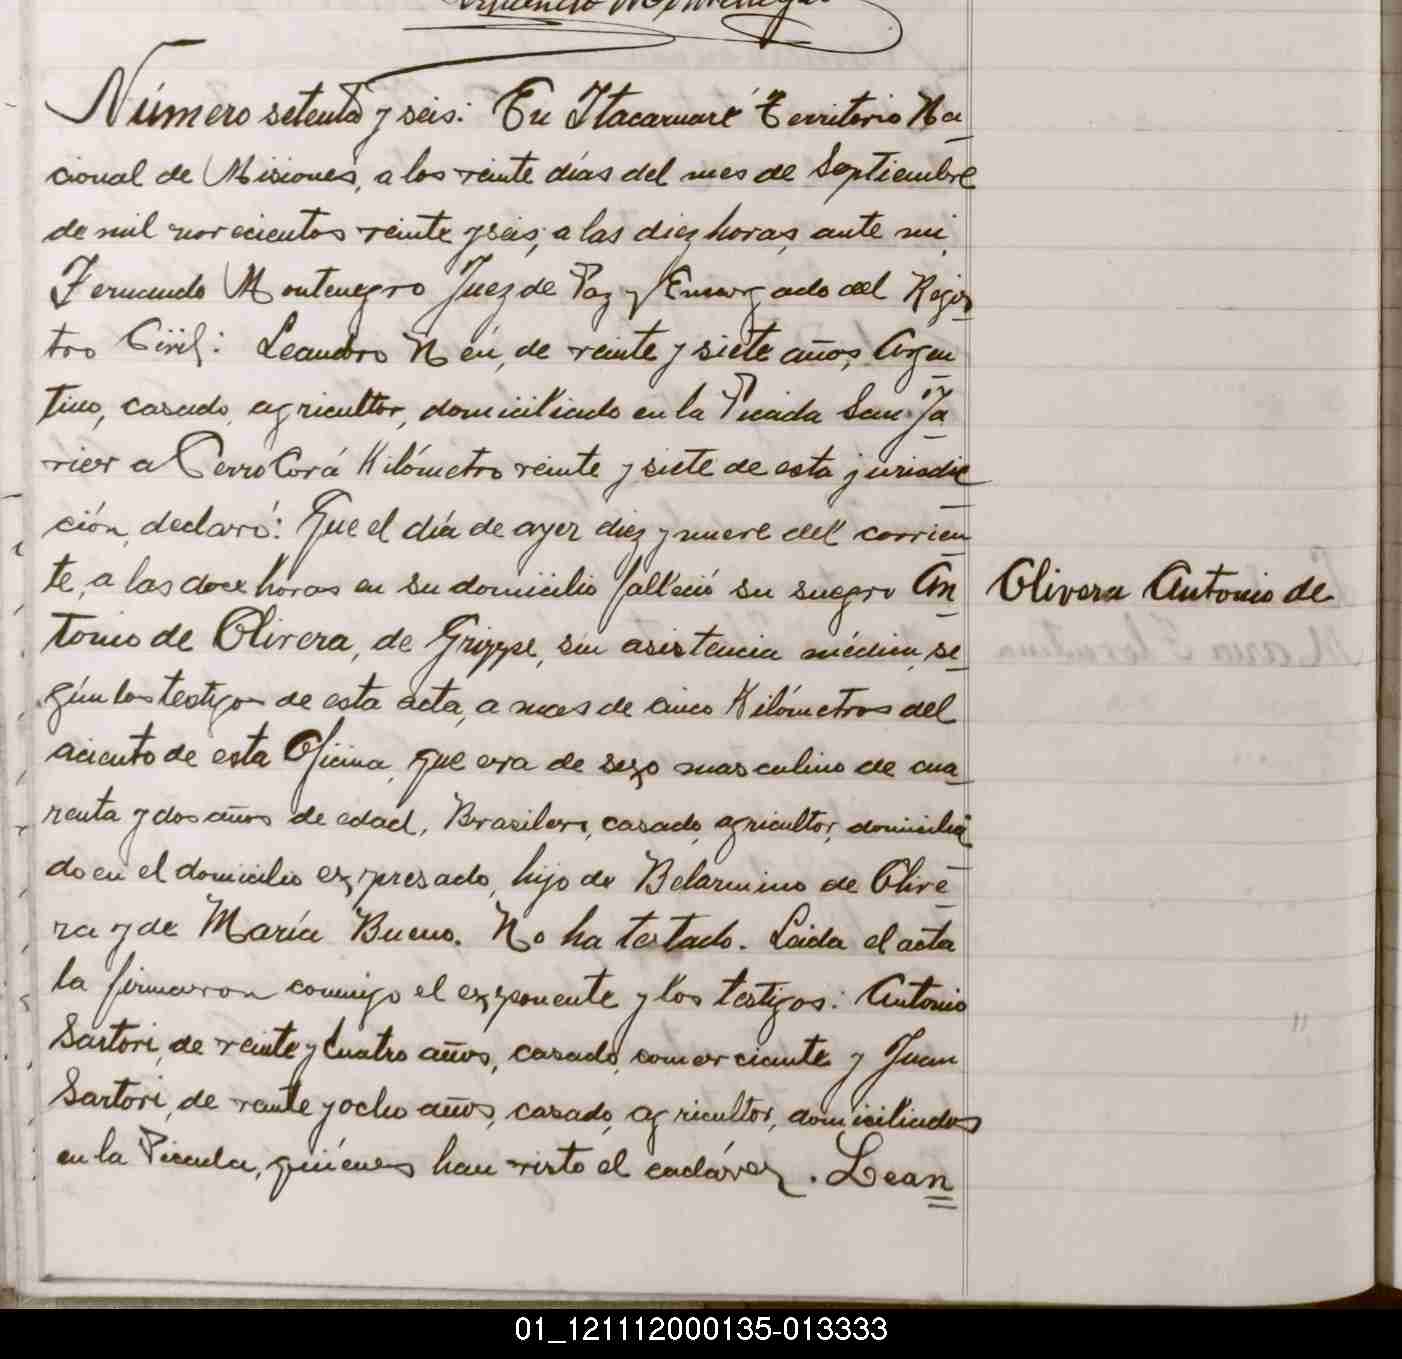 Número setenta y seis: En Itacaruaré Territorio Na-
cional de Misiones, a los veinte días del mes de Septiembre
de mil novecientos veinte y seis, a las diez horas, ante mi,
Fernando Montenegro Juez de Paz y Encargado del Regis-
tro Civil: Leandro Neú, de veinte y siete años, Argen-
tino, casado, agricultor, domiciliado en la Picada San Ja-
vier a Cerro Corá Kilómetro veinte y siete de esta jurisdic-
ción, declaró: Que el día de ayer diez y nueve del corrien-
te, a las doce horas en su domicilio falleció su suegro An-
tonio de Olivera, de Grippe, sin asistencia médica, se-
gún los testigos de esta acta, a mas de cinco Kilómetros del
aciento de esta Oficina, que era de sexo masculino de cua-
renta y dos años de edad, Brasilero, casado, agricultor, domicilia-
do en el domicilio expresado, hijo de Belarmino de Olive-
ra y de María Bueno. No ha testado. Leida el acta
la firmaron conmigo el exponente y los testigos: Antonio
Sartori, de veinte y cuatro años, casado, comerciante y Juan
Sartori, de veinte y ocho años, casado, agricultor, domiciliados
en la Picada, quiénes han visto el cadáver. Lean=
Olivera Antonio de
01_121112000135-013333